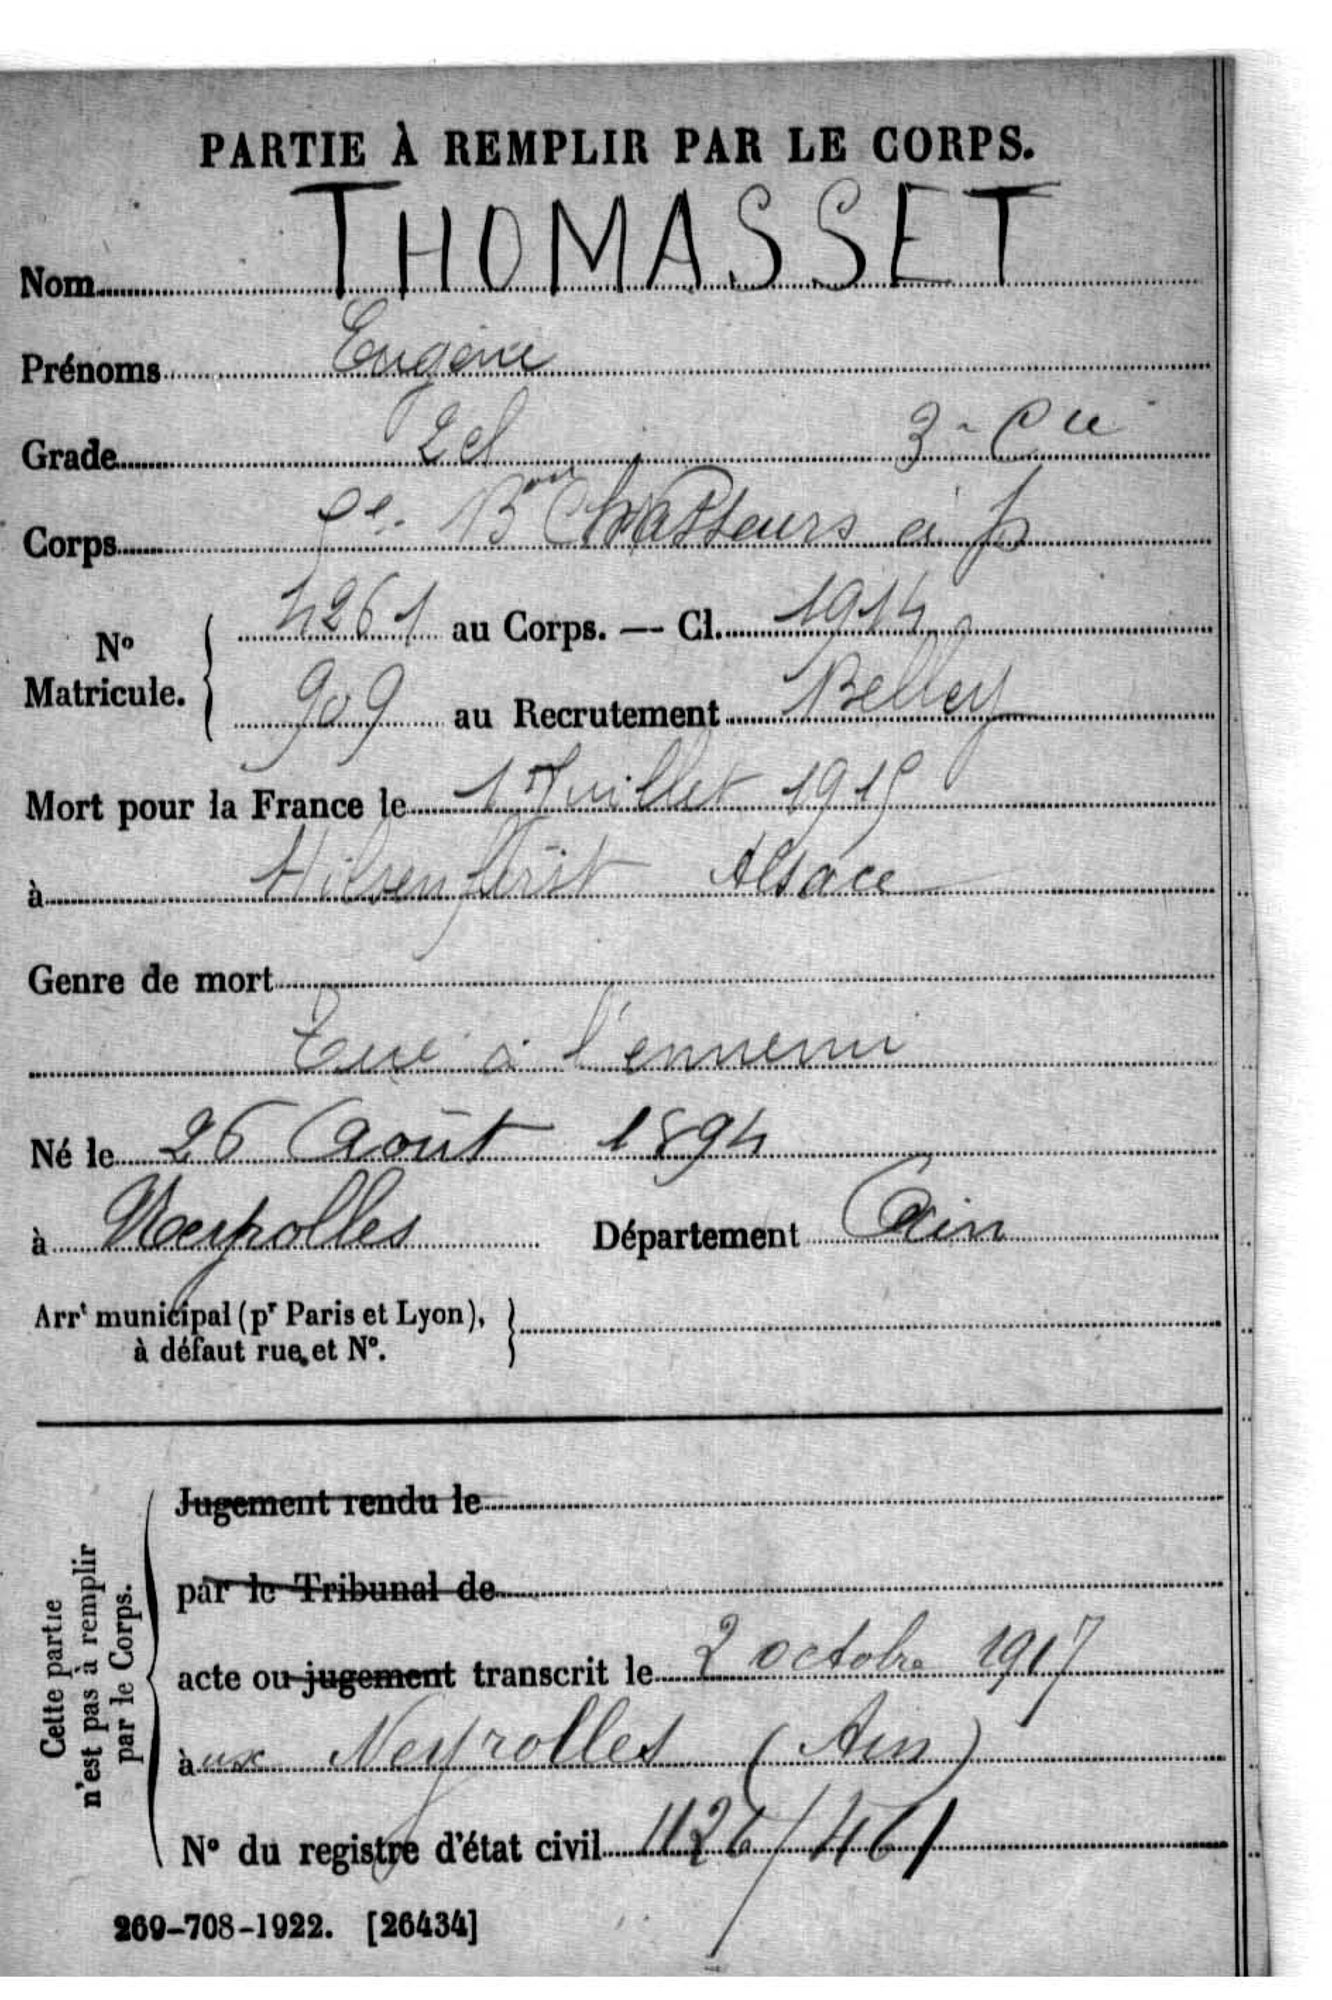 PARTIE À REMPLIR PAR LE CORPS.
Nom THOMASSET
Prénoms Eugène
Grade 2 cl 3e Cie
Corps Bon Chasseurs à p
No Matricule. 4261 au Corps. — Cl. 1914
909 au Recrutement Belley
Mort pour la France le 1 Juillet 1915
à Hilsenfirst Alsace
Genre de mort
Tué à l'ennemi
Né le 26 Août 1894
à Neyrolles Département Ain
Arrt municipal (pr Paris et Lyon),
à défaut rue et No.
Cette partie
n'est pas à remplir
par le Corps.
Jugement rendu le
par le Tribunal de
acte ou jugement transcrit le 2 octobre 1917
aux Neyrolles (Ain)
No du registre d'état civil 1126/461
269-708-1922. [26434]